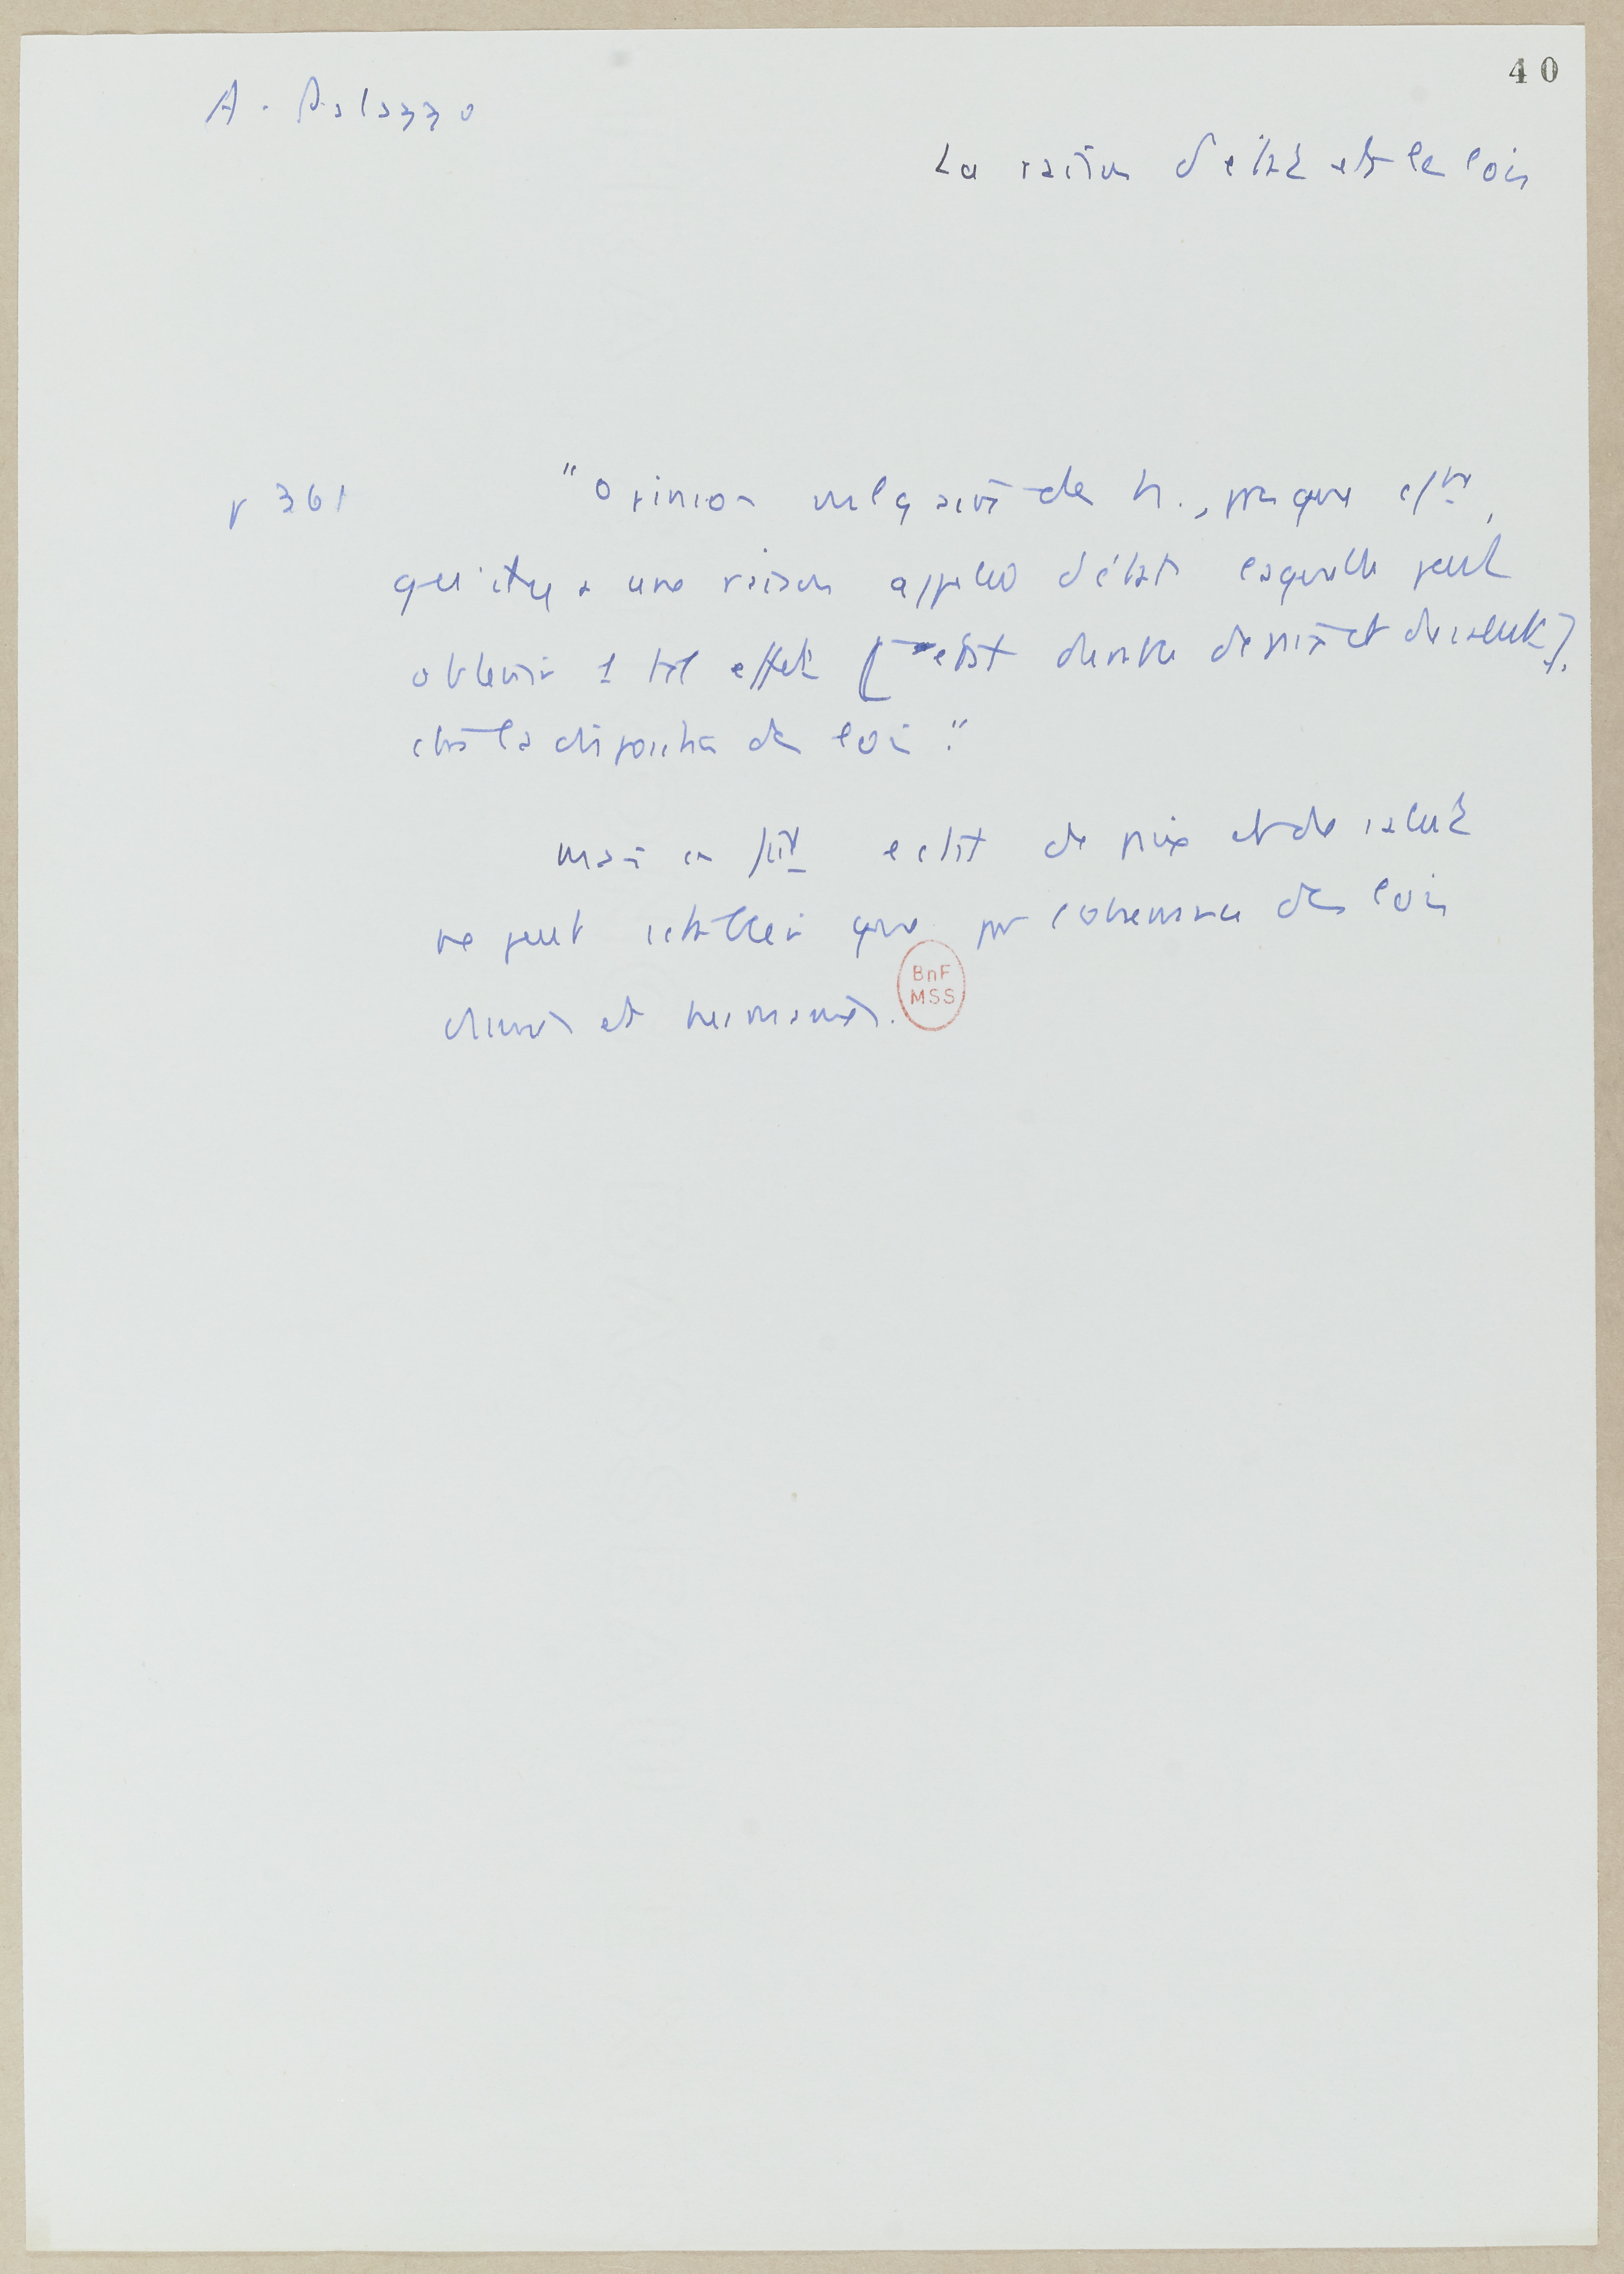 40
A. Palazzo
La raison d'état et les lois
p 361 "Opinion vulgaire de h., presque
qu'il y a une raison appelée d'état laquelle peut
obtenir 1 tel effet [état de paix et de salut],
la disposition des lois."
Mais en état de paix et de salut
ne peut s'établir que par l'observance des lois
divines et humaines.
BnF
MSS